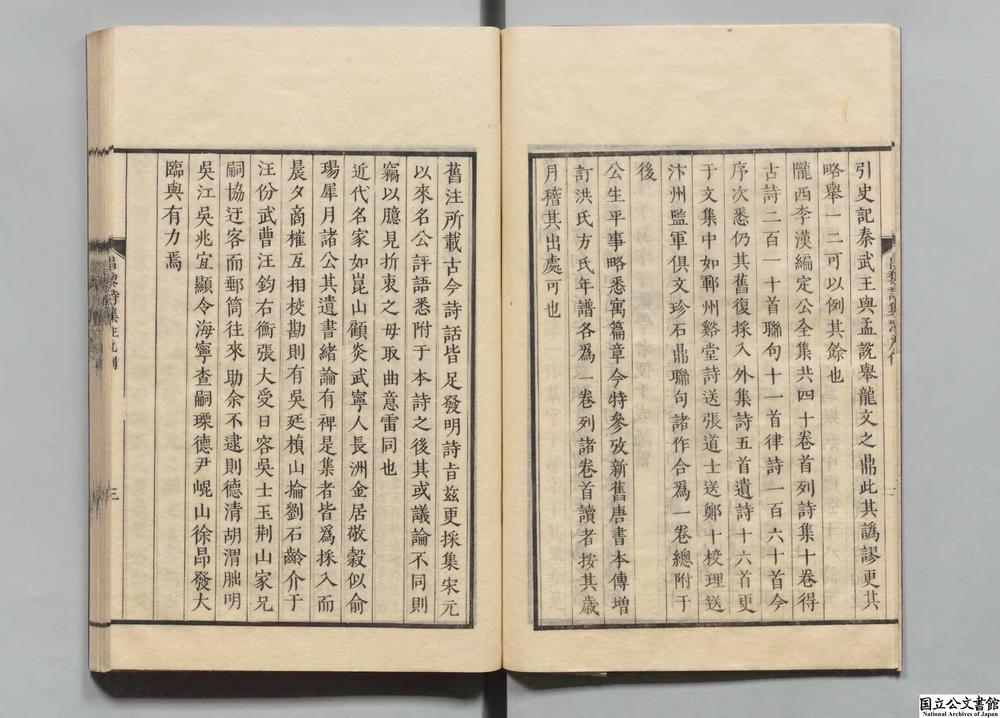 引史記秦武王與孟說舉龍文之鼎此其譌謬更其
略舉一二可以例其餘也
隴西李漢編定公全集共四十卷首列詩集十卷得
古詩二百一十首聯句十一首律詩一百六十首今
序次悉仍其舊復採入外集詩五首遺詩十六首更
于文集中如鄆州谿堂詩送張道士送鄭十校理送
汴州監軍俱文珍石鼎聯句諸作合爲一卷總附于
後
公生平事略悉寓篇章今特參攷新舊唐書本傳增
訂洪氏方氏年譜各爲一卷列諸卷首讀者按其歲
月稽其出處可也
舊注所載古今詩話皆足發明詩旨兹更採集宋元
以來名公評語悉附于本詩之後其或議論不同則
竊以臆見折衷之毋取曲意雷同也
近代名家如崑山顧炎武寧人長洲金居敬穀似俞
瑒犀月諸公其遺書緒論有裨是集者皆爲採入而
晨夕商榷互相校勘則有吳廷楨山掄劉石齡介于
汪份武曹汪鈞右衡張大受日容吳士玉荆山家兄
嗣協迂客而郵筒往來助余不逮則德清胡渭朏明
吳江吳兆宜顯令海寧查嗣瑮德尹崐山徐昂發大
臨與有力焉
昌黎詩集注凡例
三
国立公文書館
National Archives of Japan